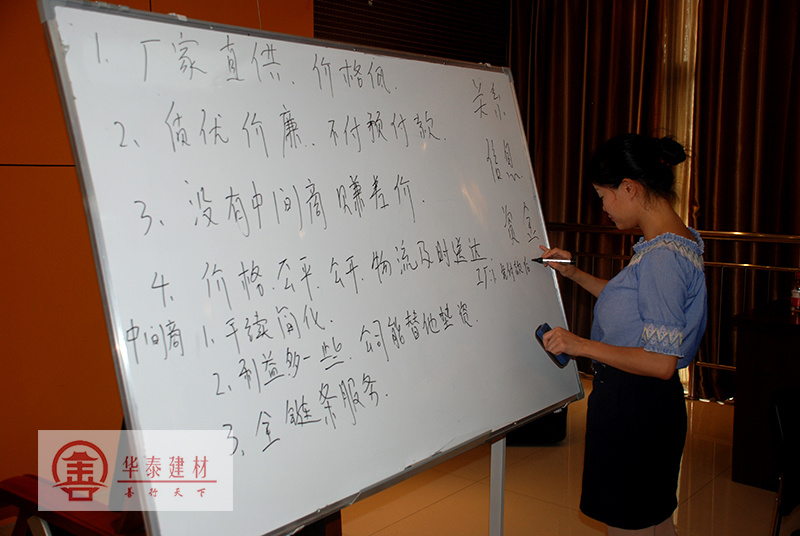 1. 厂家直供、价格低.
2、质优价廉、不付预付款、
3、没有中间商赚差价.
4、价格、公平、公开、物流及时送达
中间商 1.手续简化.
2.利益多一些、公司能替他垫资.
3、全链条服务.
关系
信息
资金
华泰建材
善行天下